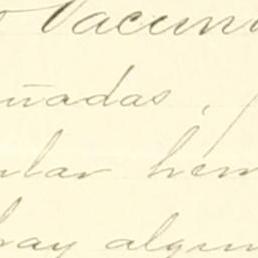 Vacun
uñadas,
ular hem
hay algun